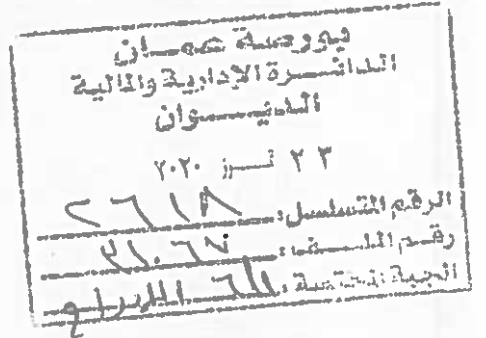 بورصة عمان
الدائرة الإدارية والمالية
الديوان
٢٣ تموز ٢٠٢٠
الرقم المتسلسل: ٢٦١٨
رقم الملف: ٣١٠٦٧
الجهة المختصة: